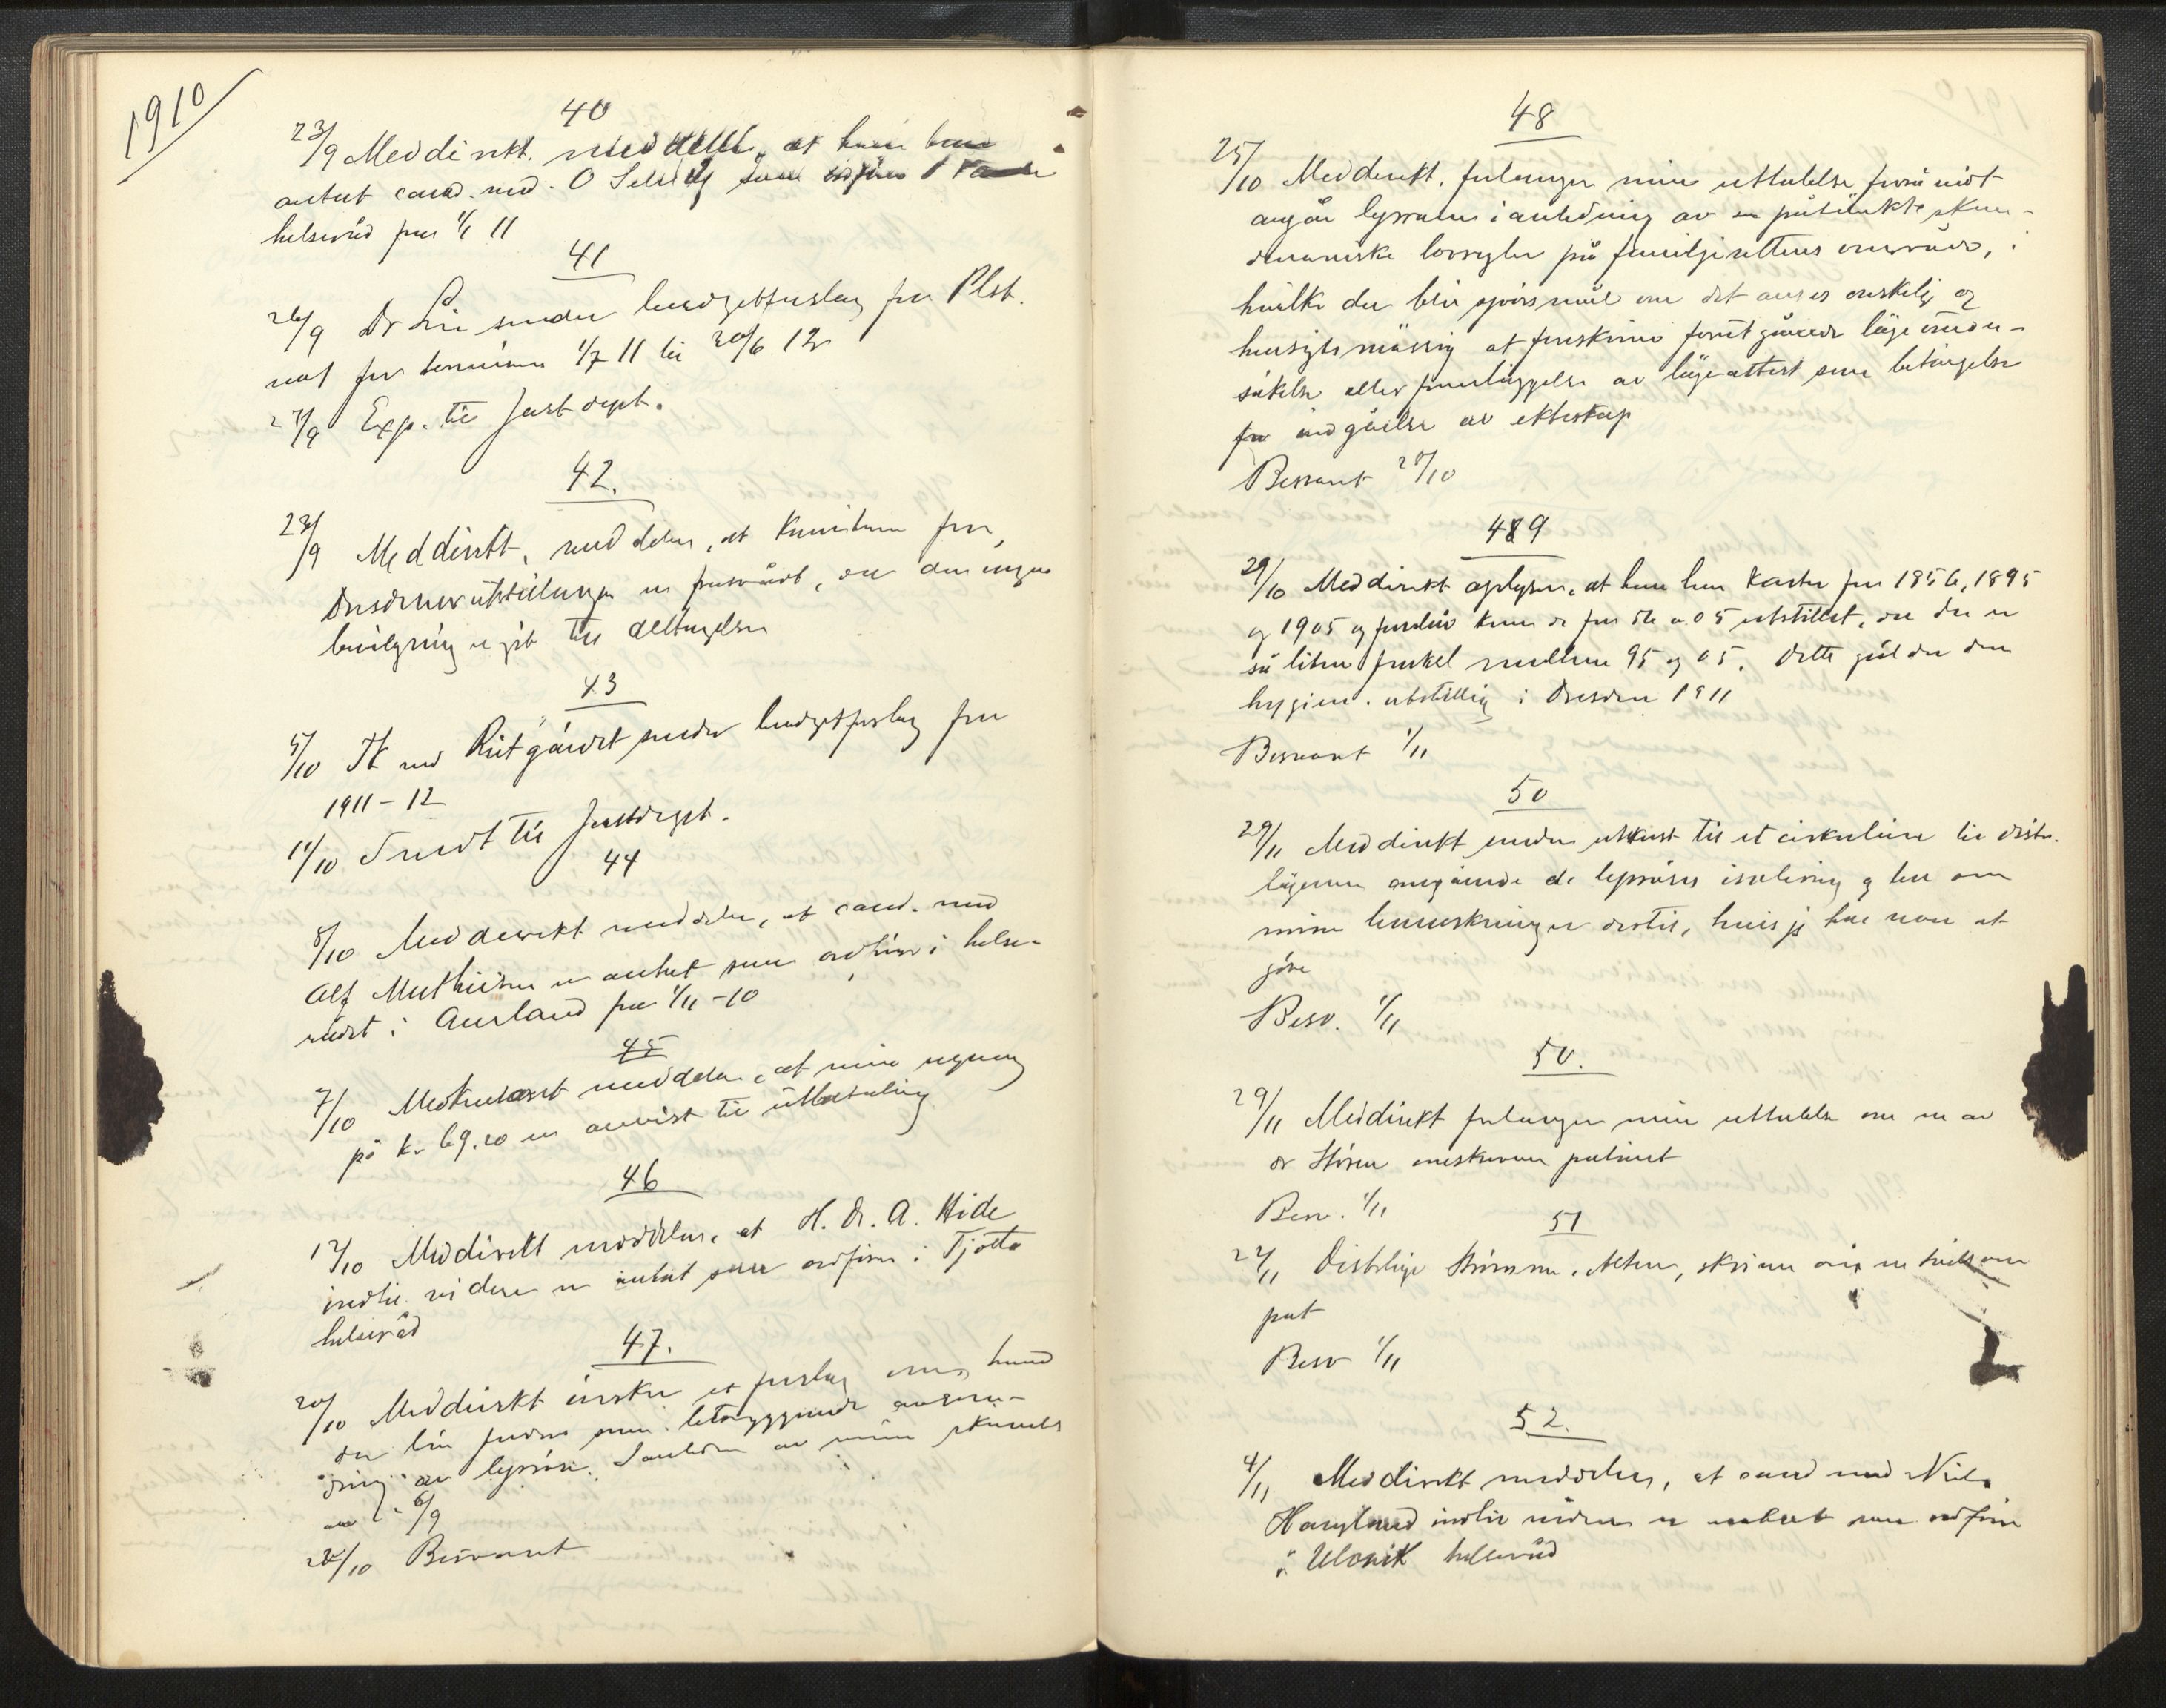 1910
40
23/9 Meddirekt. meddeler, at han har
antat cand. med. O Selsåg som ordfører i
helseråd fra 1/1 11
41
26/9 Dr Lie sender budgetforslag for Plst.
nat for terminen 1/7 11 til 30/6 12
27/9 Exp. til Just dept.
42.
23/9 Meddirekt. meddeler, at Komiteen for
Dresdenerutstillingen er forsvundet, da der ingen
bevilgning er git til deltagelse
43
5/10 Tk ved Reitgjærdet sender budgetforslag for
1911-12
11/10 Sendt til Justdept.
44
8/10 Meddirekt meddeler, at cand. med
Alf Mathiesen er antat som ordfører i helse-
rådet i Aurland fra 1/11-10
45
7/10 Medkontoret meddeler, at min regning
på kr 69.20 er anvist til utbetaling
46
12/10 Meddirekt meddeler, at H. Dr. A. Hide
indtil videre er antat som ordfører i Tjøtta
helseråd
47.
20/10 Meddirekt ønsker et forslag om, hvad
der bør fordres som betryggende avson-
dring av lepröse. Sml. min skrivelse
av 6/9
25/10 Besvart
48
25/10 Meddirekt. forlanger min uttalelse, forsåvidt
angår lepraen i anledning av en påtænkt skan-
dinaviske lovregler på familjerettens område, i
hvilke der blir spörsmål om det anses önskelig og
hensigtsmässig at foreskrive forutgående lägeundor-
sökelse eller fremläggelse av lägeattest som betingelse
for indgåelse av ekteskap
Besvart 27/10
49
29/10 Meddirekt oplyser, at han har karter for 1856, 1895
og 1905 og foreslår kun de for 56 o 05 utstillet, da der er
så liten forskel mellem 95 og 05. Dette gjelder den
hygien. utstilling i Dresden 1911
Besvart 1/11
50
29/11 Meddirekt sender utkast til et cirkulære til distr.
lägerne angående de leprøses isolering og ber om
mine bemerkninger dertil, hvis jg har noen at
göre
Besv. 1/11
50.
29/11 Meddirekt forlanger min uttalelse om en av
dr Stören omskreven patient
Besv. 1/11
51
27/11 Distrläge Stören, Alten, skriver om en
pat
Besv 1/11
52.
4/11 Meddirekt meddeler, at cand med Nils
Haugland indtil videre er antat som ordfører
i Ulvik helseråd